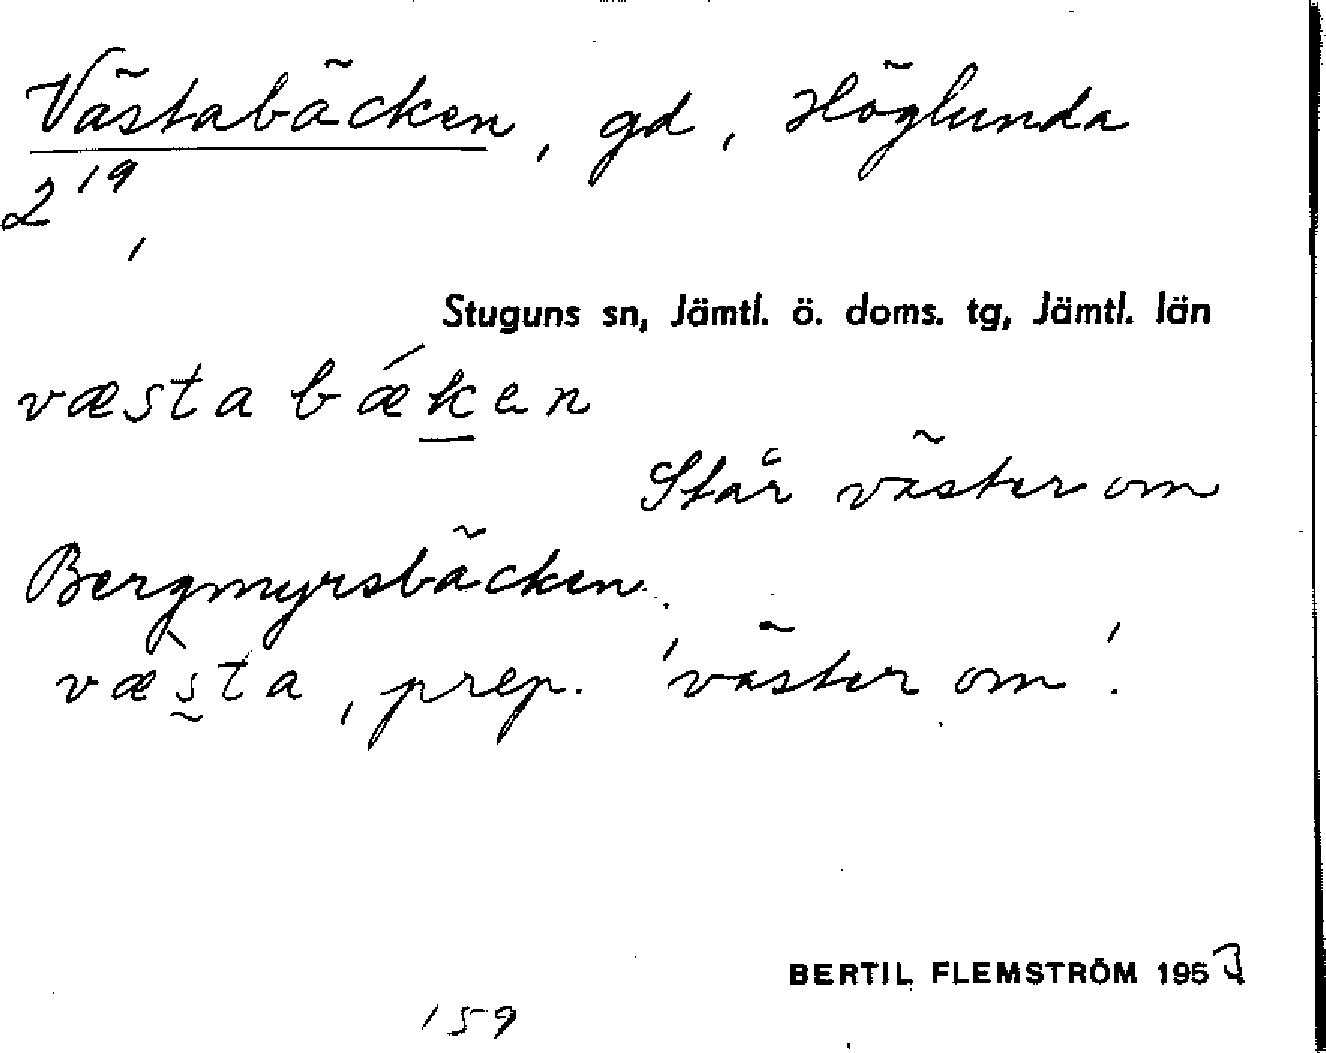 Västabäcken, gd, Höglunda
2¹⁹,
Stuguns sn, Jämtl. ö. doms. tg, Jämtl. län
væstabǽken
Står väster om
Bergmyrsbäcken.
væ̀sta, prep. 'väster om'.
BERTIL FLEMSTRÖM 1953
159